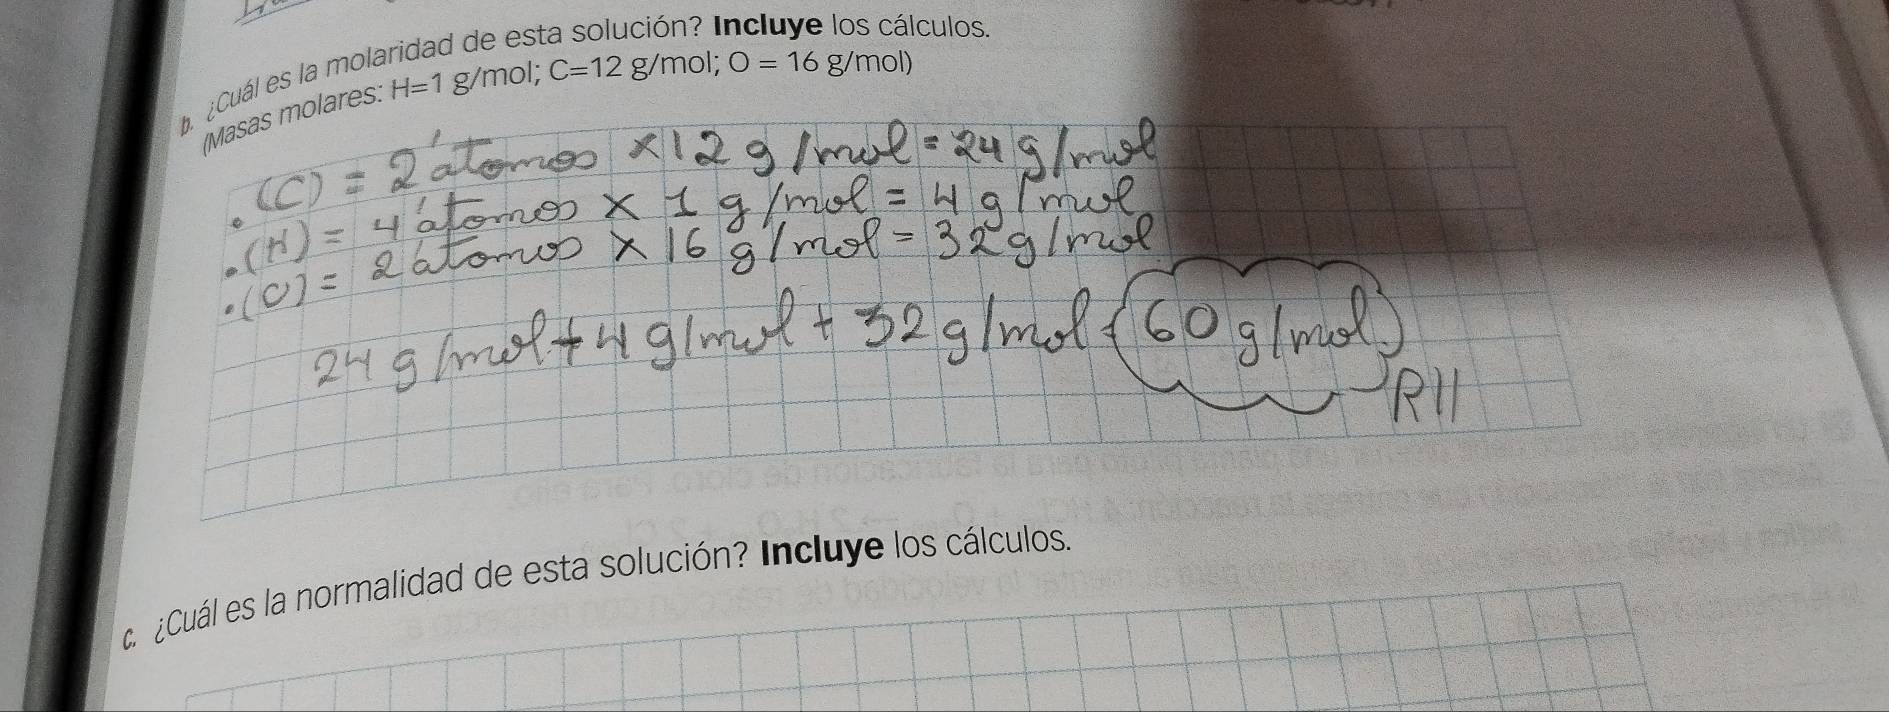 b. ¿Cuál es la molaridad de esta solución? Incluye los cálculos.
(Masas molares: H=1 g/mol; C=12 g/mol; O = 16 g/mol)
. (C) = 2 átomos ×12 g/mol = 24 g/mol
. (H) = 4 átomos × 1 g/mol = 4 g/mol
. (O) = 2 átomos × 16 g/mol = 32 g/mol
24 g/mol + 4 g/mol + 32 g/mol = 60 g/mol
R//
c. ¿Cuál es la normalidad de esta solución? Incluye los cálculos.